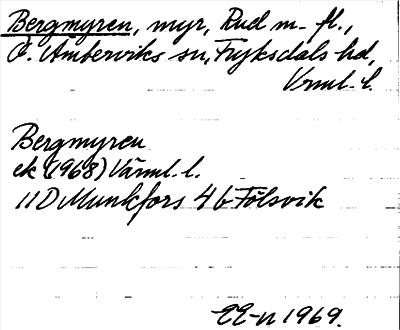 Bergmyren, myr, Rud m. fl.,
Ö. Ämterviks sn, Fryksdals hd,
Vrml. l.
Bergmyren
ek (1968) Värml. l.
11D Munkfors 4b Fölsvik
EE-n 1969.